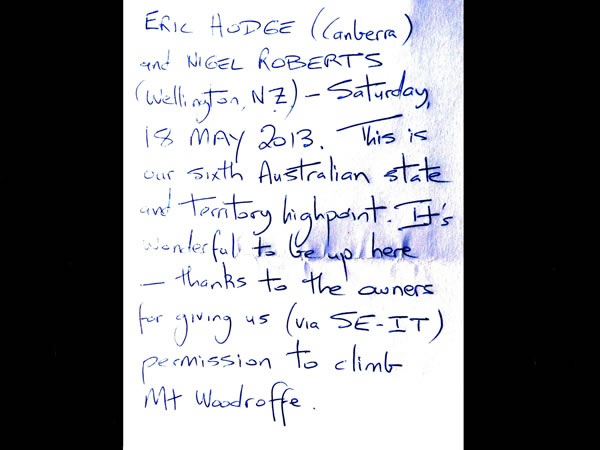 ERIC HODGE (Canberra)
and NIGEL ROBERTS
(Wellington, NZ) – Saturday,
18 MAY 2013. This is
our sixth Australian state
and Territory highpoint. It's
wonderful to be up here
– thanks to the owners
for giving us (via SE-IT)
permission to climb
Mt Woodroffe.